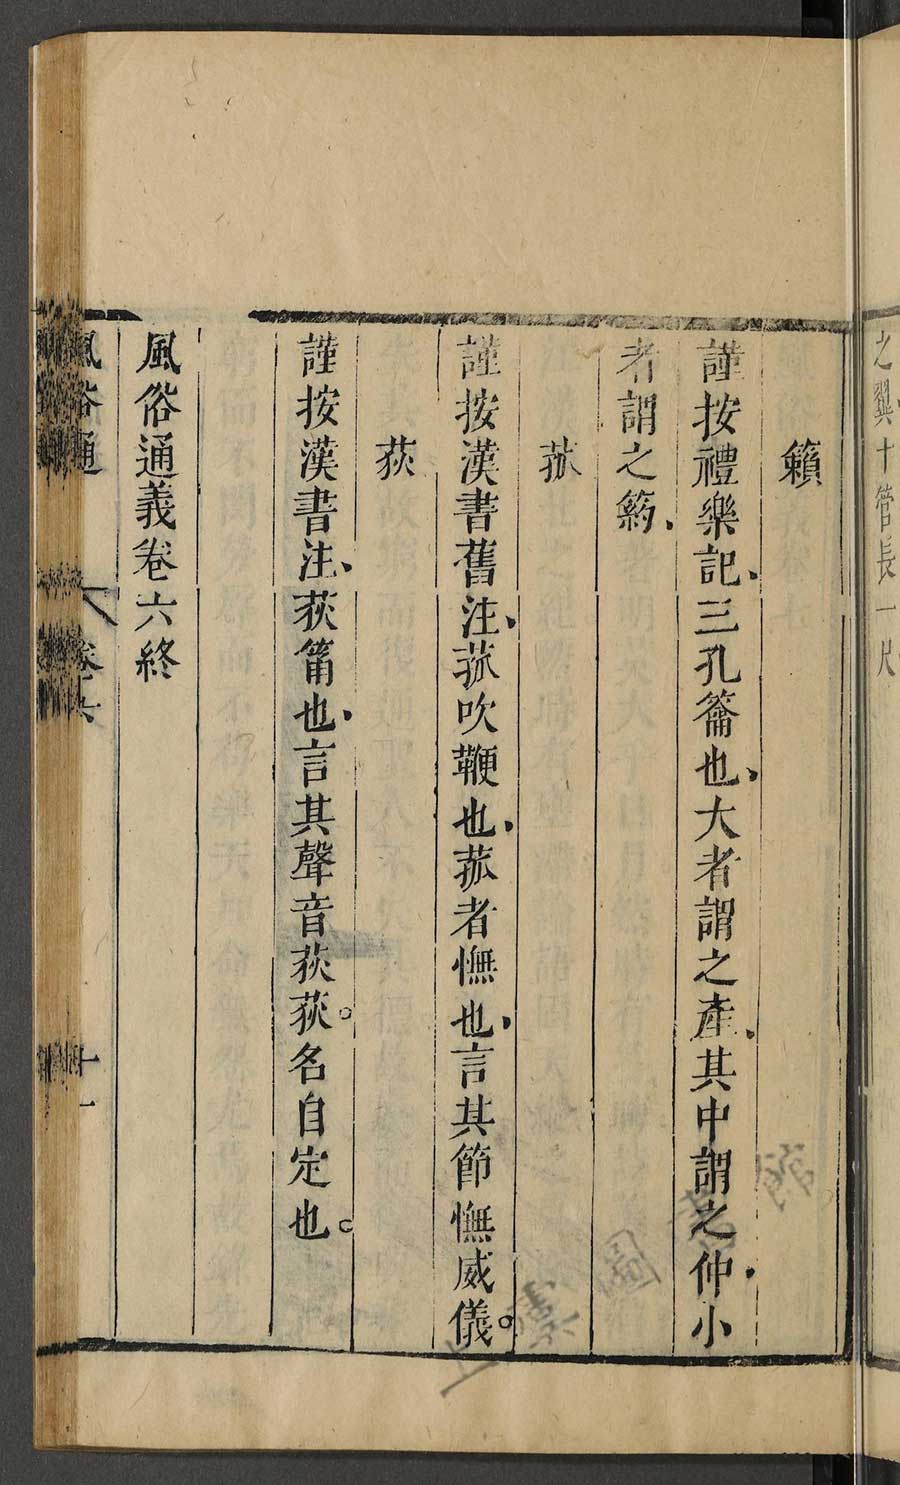 之翼十管長一尺
籟
謹按禮樂記、三孔籥也、大者謂之產、其中謂之仲、小
者謂之箹、
菰
謹按漢書舊注、菰吹鞭也、菰者憮也、言其節憮威儀。
荻
謹按漢書注、荻筩也、言其聲音荻荻。名自定也。
風俗通義卷六終
風俗通 卷六 十一